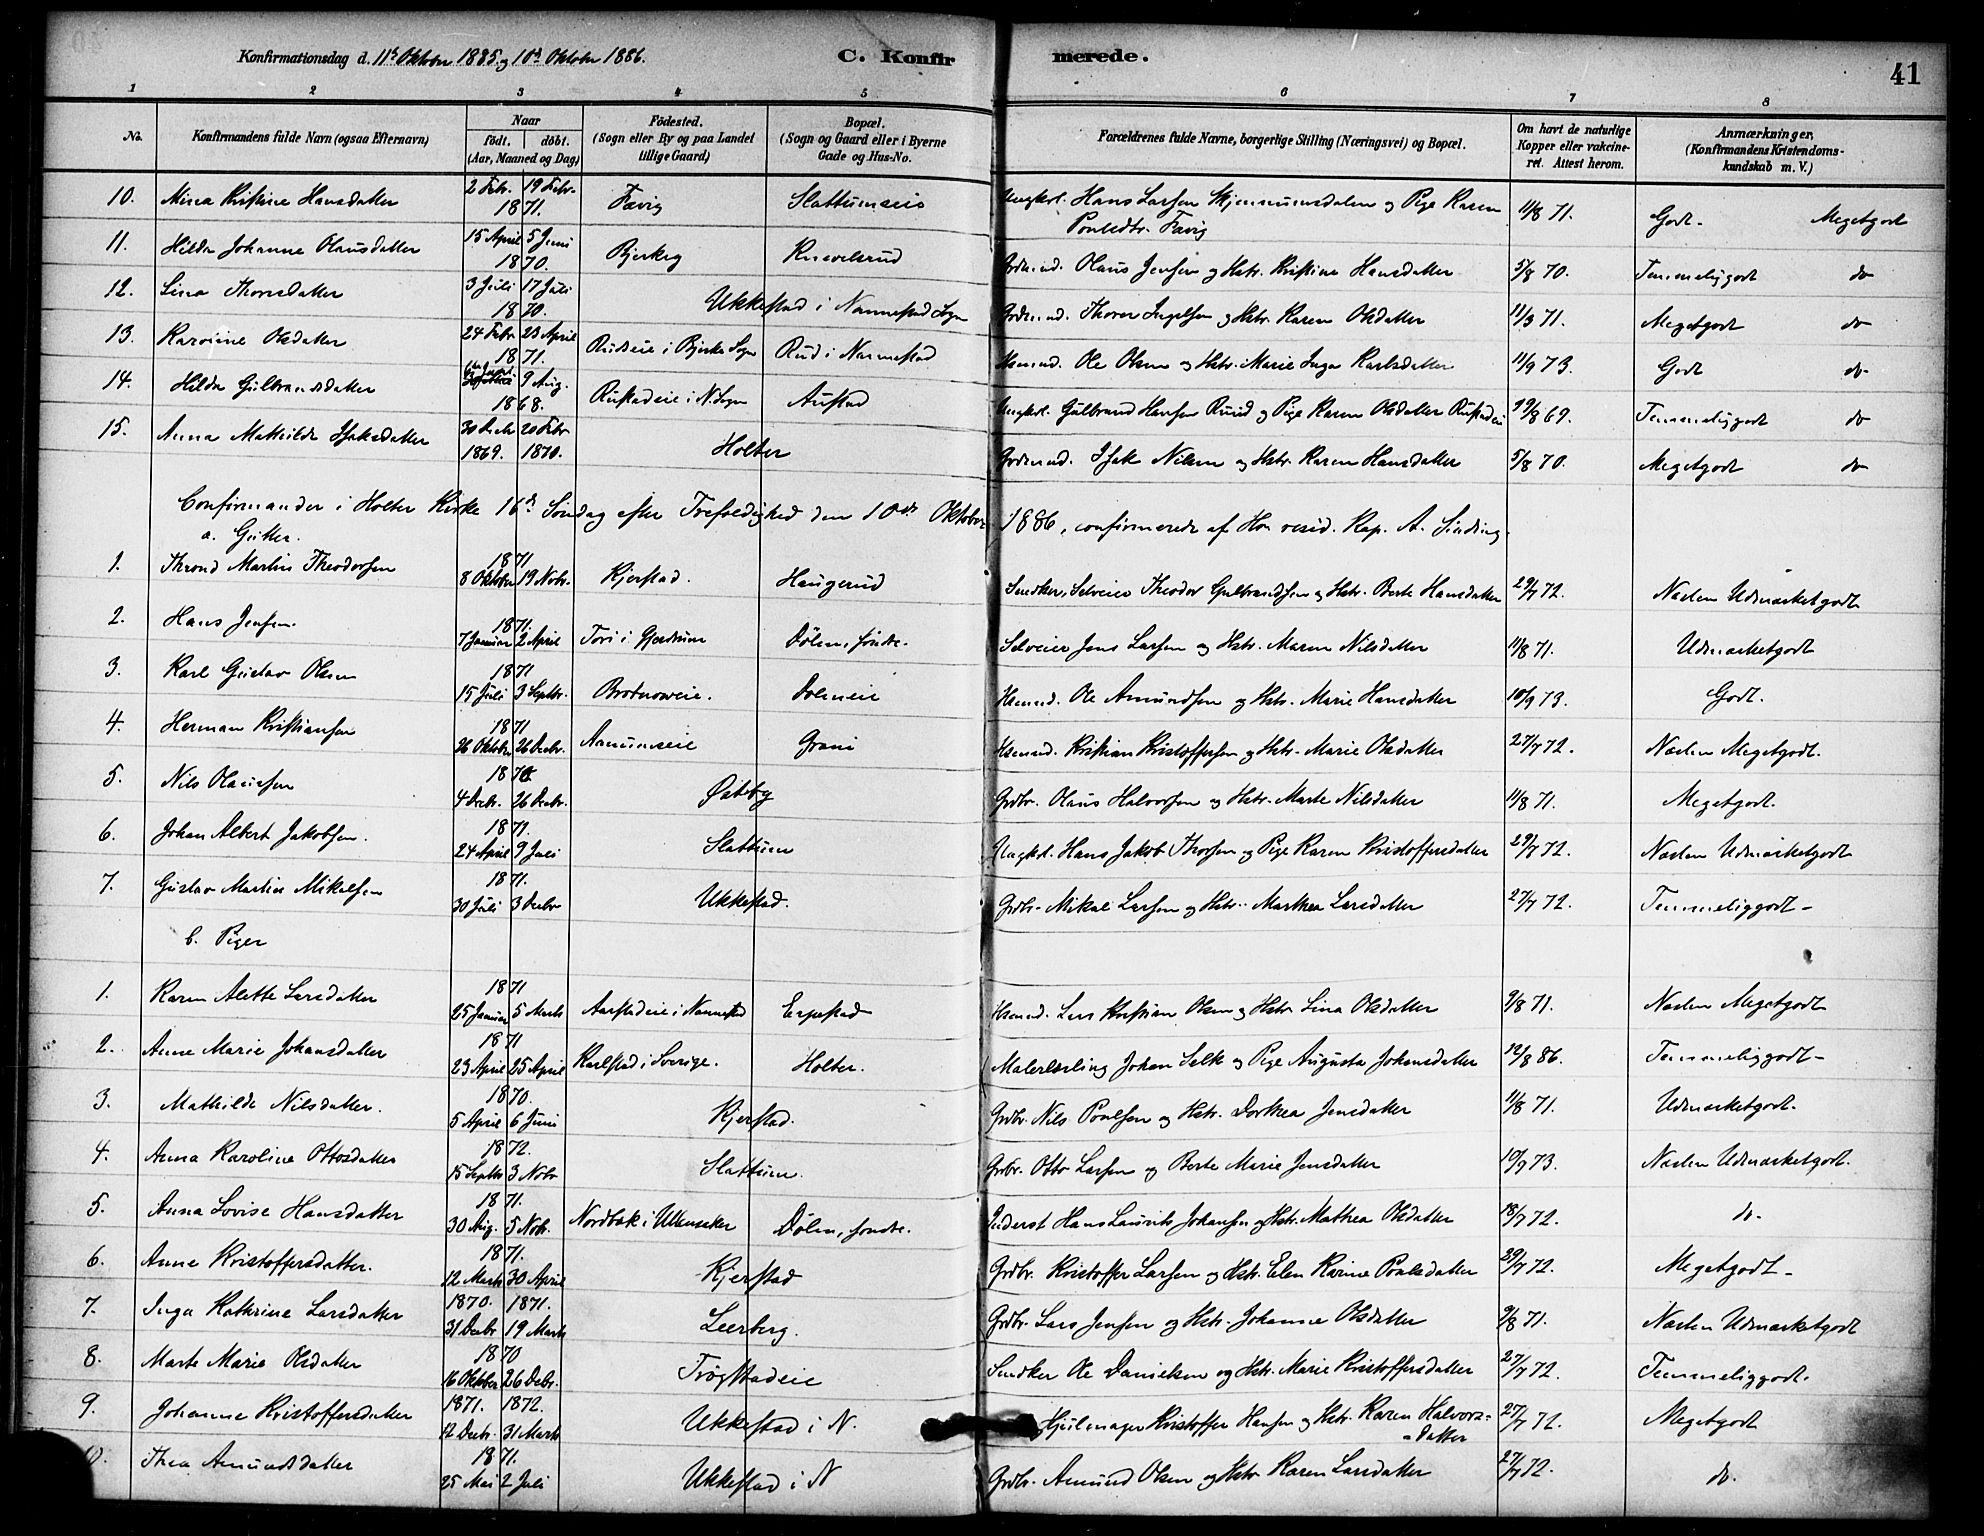 Konfirmationsdag d. 11te Oktober 1885 og 10de Oktober 1886.
C. Konfirmerede.
41
1 2 3 4 5 6 7 8
No. Konfirmandens fulde Navn (ogsaa Efternavn) Naar født. døbt. (Aar, Maaned og Dag) Fødested. (Sogn eller By og paa Landet tillige Gaard) Bopæl. (Sogn og Gaard eller i Byerne Gade og Hus-No. Forældrenes fulde Navne, borgerlige Stilling (Næringsvei) og Bopæl. Om havt de naturlige Kopper eller vakcineret. Attest herom. Anmærkninger, (Konfirmandens Kristendomskundskab m. V.)
10. Mina Kristine Hansdatter 2 Febr. 19 Febr. 1871. Favig Slattumseie Ungkrl. Hans Larsen Skjennumsdalen og Pige Karen Poulsdtr. Favig 11/8 71. Godt. Megetgodt
11. Hilda Johanne Olausdatter 15 April 5 Juni 1870. Bjerkeg Grdmnd. Olaus Jensen og Hstr. Kristine Hansdatter 5/8 70. Temmeliggodt do
12. Lina Thorsdatter 3 Juli 17 Juli 1870. Ukkestad i Nannestad Sogn Grdmnd. Thorer Ingelsen og Hstr. Karen Olsdatter 11/3 71. Megetgodt do
13. Karoline Olsdatter 24 Febr 23 April 1871. Rudseie i Bjerke Sogn Rud i Nannestad Hsmnd. Ole Olsen og Hstr. Marie Inga Karlsdatter 11/9 73. Godt do
14. Hilda Gulbrandsdatter 9 Aug. 1868. Rustadeie i N. Sogn Austad Ungkrl. Gulbrand Hansen Ruud og Pige Karen Olsdatter Rustadeie 19/8 69. Temmeliggodt do
15. Anna Mathilde Isaksdatter 30 Decbr 1869. 20 Febr 1870. Holter Grdmnd. Isak Nilsen og Hstr. Karen Hansdatter 5/8 70. Megetgodt do
Confirmander i Holter Kirke 16de Søndag efter Trefoldighed den 10de Oktober 1886, confirmerede af Hr. resid. Kap. A. Sinding.
a. Gutter.
1. Thrond Martin Theodorsen 1871 8 Oktober 19 Novbr. Kjerstad. Haugerud Snedker, Selveier Theodor Gulbrandsen og Hstr. Berte Hansdatter 29/7 72. Næsten Udmærketgodt
2. Hans Jensen. 1871. 7 Januar 2 April Tori i Gjerdrum Dølen, søndre. Selveier Jens Larsen og Hstr. Maren Nilsdatter 11/8 71. Udmærketgodt
3. Karl Gustav Olsen 1871 15 Juli 3 Septbr. Brotnoweie. Døleneie Hsmnd. Ole Amundsen og Hstr. Marie Hansdatter 10/9 73. Godt.
4. Herman Kristiansen 1871 26 Oktober 26 Decbr. Aanumseie Grani Hsmnd. Kristian Kristoffersen og Hstr. Marie Olsdatter 27/7 72. Næsten Megetgodt.
5. Nils Olausen 1870 4 Decbr. 26 Decbr. Østby Grdbr. Olaus Halvorsen og Hstr. Marte Nilsdatter 11/8 71. Megetgodt.
6. Johan Albert Jakobsen. 1871. 24 April 9 Juli Slattum Ungkrl. Hans Jakob Thorsen og Pige Karen Kristoffersdatter 29/7 72. Næsten Udmærketgodt
7. Gustav Martin Mikalsen 1871. 30 Juli 3 Decbr Ukkestad. Grdbr. Mikal Larsen og Hstr. Marthea Larsdatter 27/7 72. Temmeliggodt -
b. Piger
1. Karen Alette Larsdatter 1871 25 Januar 5 Marts Aarstadeie i Nannestad Erpestad Hsmnd. Lars Kristian Olsen og Hstr. Lina Olsdatter 9/8 71. Næsten Megetgodt
2. Anne Marie Johansdatter 1871 23 April 25 April Karlstad i Sverige. Holter. Malerlærling Johan Salk og Pige Augusta Johansdatter 12/8 86. Temmeliggodt -
3. Mathilde Nilsdatter. 1870. 5 April 6 Juni Kjerstad. Grdbr. Nils Poulsen og Hstr. Dorthea Jensdatter 11/8 71. Udmærketgodt.
4. Anna Karoline Ottosdatter 1872. 15 Septbr 3 Novbr Slattum. Grdbr. Otto Larsen og Berte Marie Jensdatter 10/9 73. Næsten Udmærketgodt.
5. Anna Lovise Hansdatter 1871. 30 Aug. 5 Novbr. Nordbak i Ullensaker Dølen, søndre. Inderst Hans Laurits Johansen og Hstr. Mathea Olsdatter 18/7 72. do.
6. Anne Kristoffersdatter. 1871. 12 Marts 30 April Kjerstad Grdbr. Kristoffer Larsen og Hstr. Elen Karine Poulsdatter 29/7 72. Megetgodt -
7. Inga Kathrine Larsdatter 1870. 1871. 31 Decbr 19 Marts Leerberg. Grdbr. Lars Jensen og Hstr. Johanne Olsdatter 9/8 71. Næsten Udmærketgodt
8. Marte Marie Olsdatter 1870 16 Oktober 26 Decbr. Trøgstadeie Snedker Ole Danielsen og Hstr. Marie Kristoffersdatter 27/7 72. Temmeliggodt.
9. Johanne Kristoffersdatter 1871. 1872. 12 Decbr. 31 Marts Ukkestad i N. Hjulmager Kristoffer Hansen og Hstr. Karen Halvorsdatter 27/7 72. Megetgodt
Thea Amundsdatter 1871. 25 Mai 2 Juli Ukkestad i N Grdbr. Amund Olsen og Hstr. Karen Larsdatter 27/7 72. do.